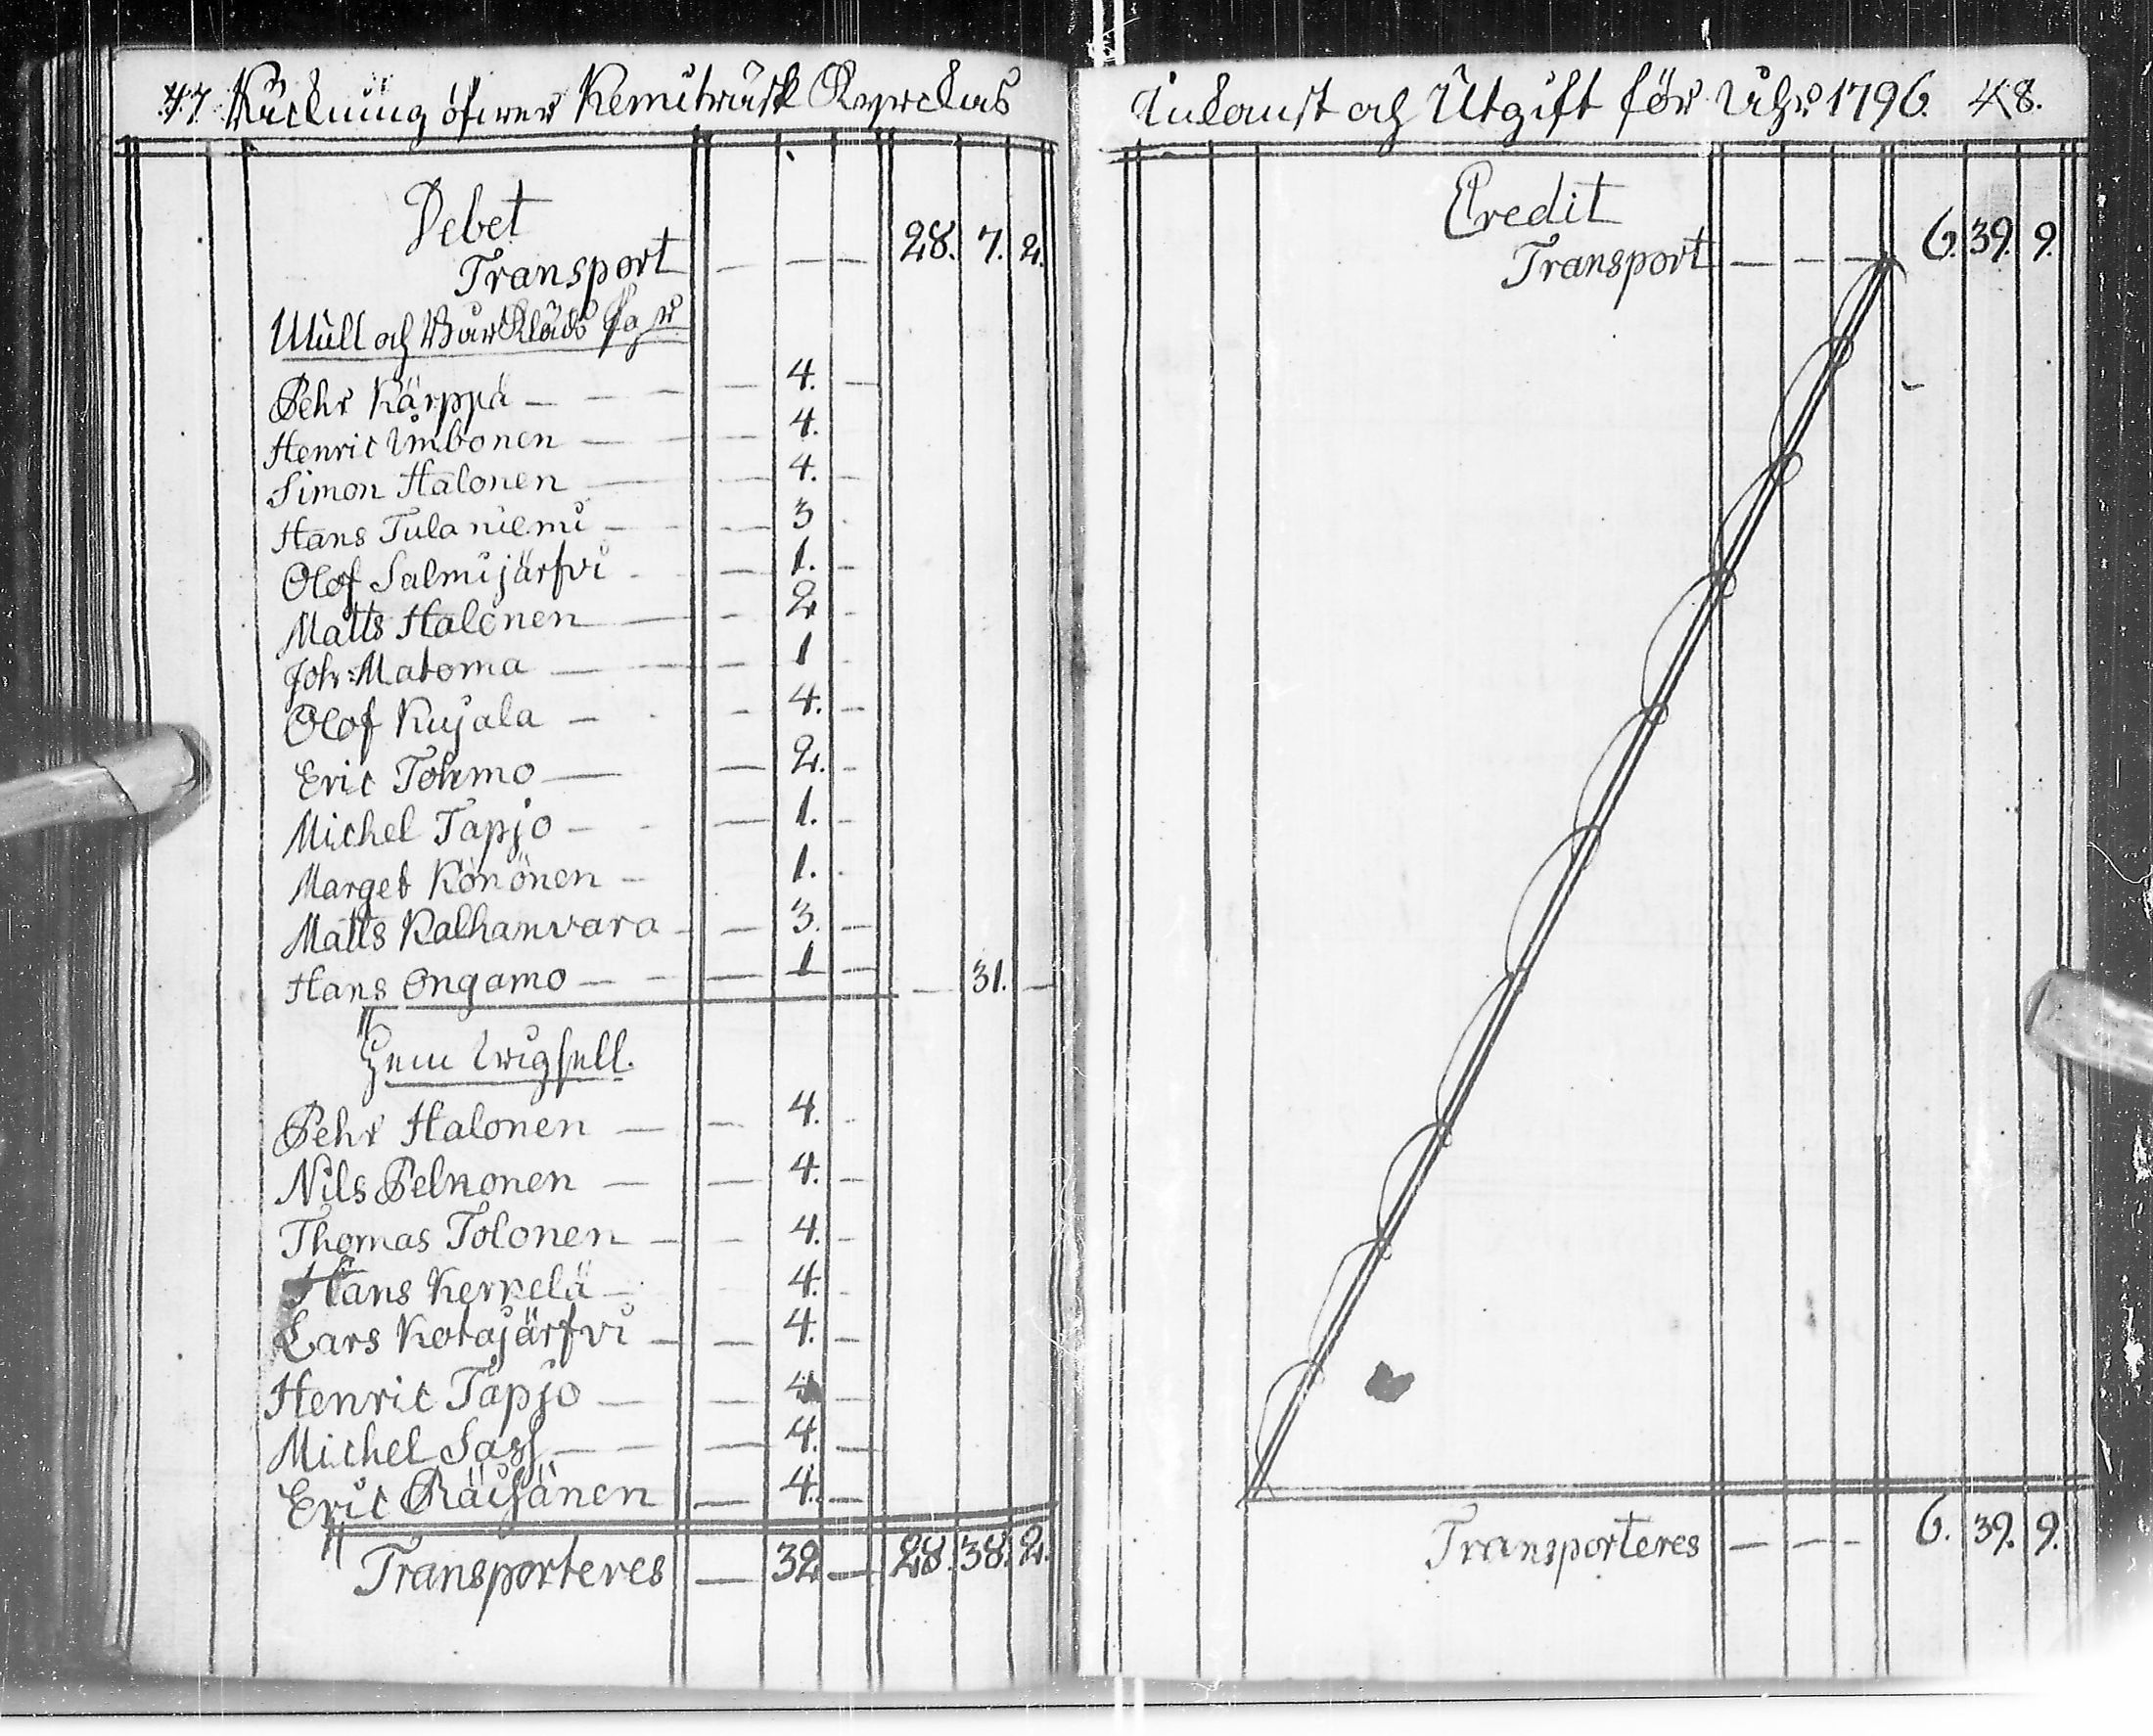 47. Räckning öfwer Kemiträsk Kyrckas
Debet
Transport — — — 28. 7. 2.
Mull och Bårkläds
Pehr Kärppä — — — 4. —
Henric Imbonen — — 4.
Simon Halonen — — 4. —
Hans Tulaniemi — — 3
Olof Salmijärfvi — 1. —
Matts Halonen — — 2 —
Joh: Matoma — — 1
Olof Kujala — — 4. —
Eric Tohmo — — 2. —
Michel Tapjo — — 1. —
Marget Könönen — 1.
Matts Kalhanvara — — 3. —
Hans Ongamo — — — 1 — — 31. —
Hem Wigsell.
Pehr Halonen — — 4.
Nils Pelkonen — — 4. —
Thomas Tolonen — — 4. —
Hans Kerkelä — — 4. —
Lars Kotajärfvi — — 4. —
Henric Tapjo — — 4 —
Michel Sass — — — 4. —
Eric Räisänen — 4. —
Transporteres — 32 — 28. 38. 2.
Inkomst och Utgift för Åhr 1796. 48.
Credit
Transport — — — 6. 39. 9.
Transporteres — — — 6. 39. 9.